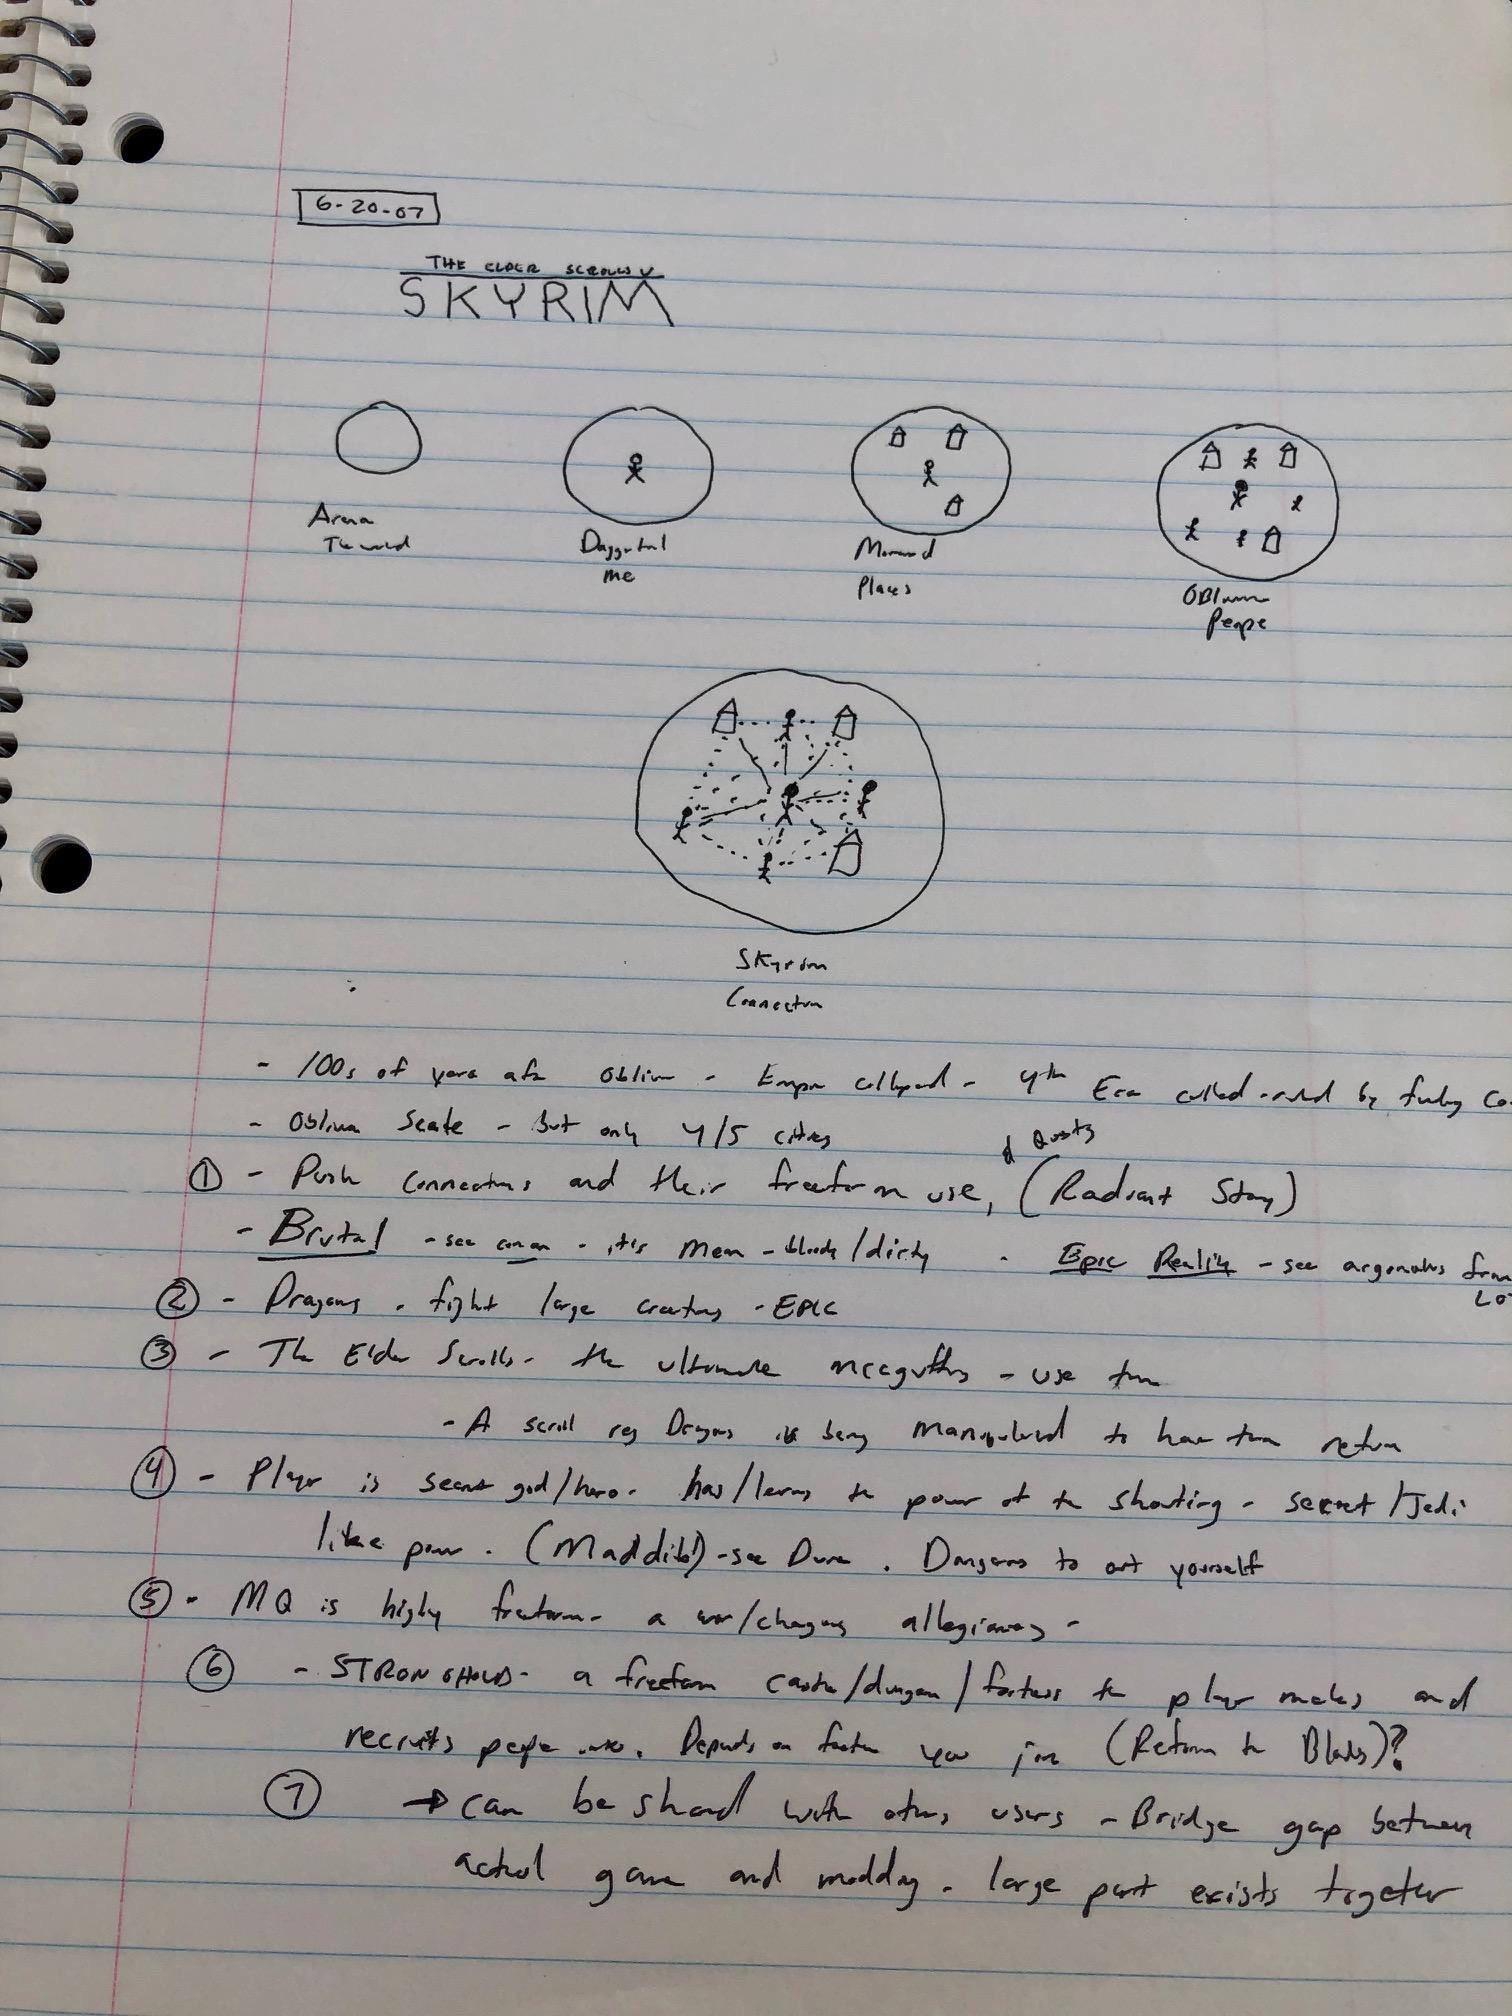 6-20-07
THE ELDER SCROLLS V
SKYRIM
Arena
The world
Daggerfall
me
Morrowind
Places
Oblivion
People
Skyrim
Connection
- 100s of years after Oblivion - Empire collapsed - 4th Era called - ruled by
- Oblivion Scale - But only 4/5 cities
& Quests
① - Push Connections and their freeform use, (Radiant Story)
- Brutal - see conan - it's mean - bloody/dirty - Epic Reality - see argonaths from
② - Dragons - fight large creatures - EPIC
③ - The Elder Scrolls - the ultimate mcguffins - use them
- A scroll reg Dragons is being manipulated to have them return
④ - Player is secret god/hero - has/learns the power of the shouting - secret/Jedi
like power. (Maddib!) - see Dune. Dangerous to out yourself
⑤ - MQ is highly freeform - a war/changing allegiances -
⑥ - STRONGHOLDS - a freeform castle/dungeon/fortress the player makes and
recruits people into. Depends on faction you join (Return to Blades)?
⑦ → can be shared with other users - Bridge gap between
actual game and modding. large part exists together